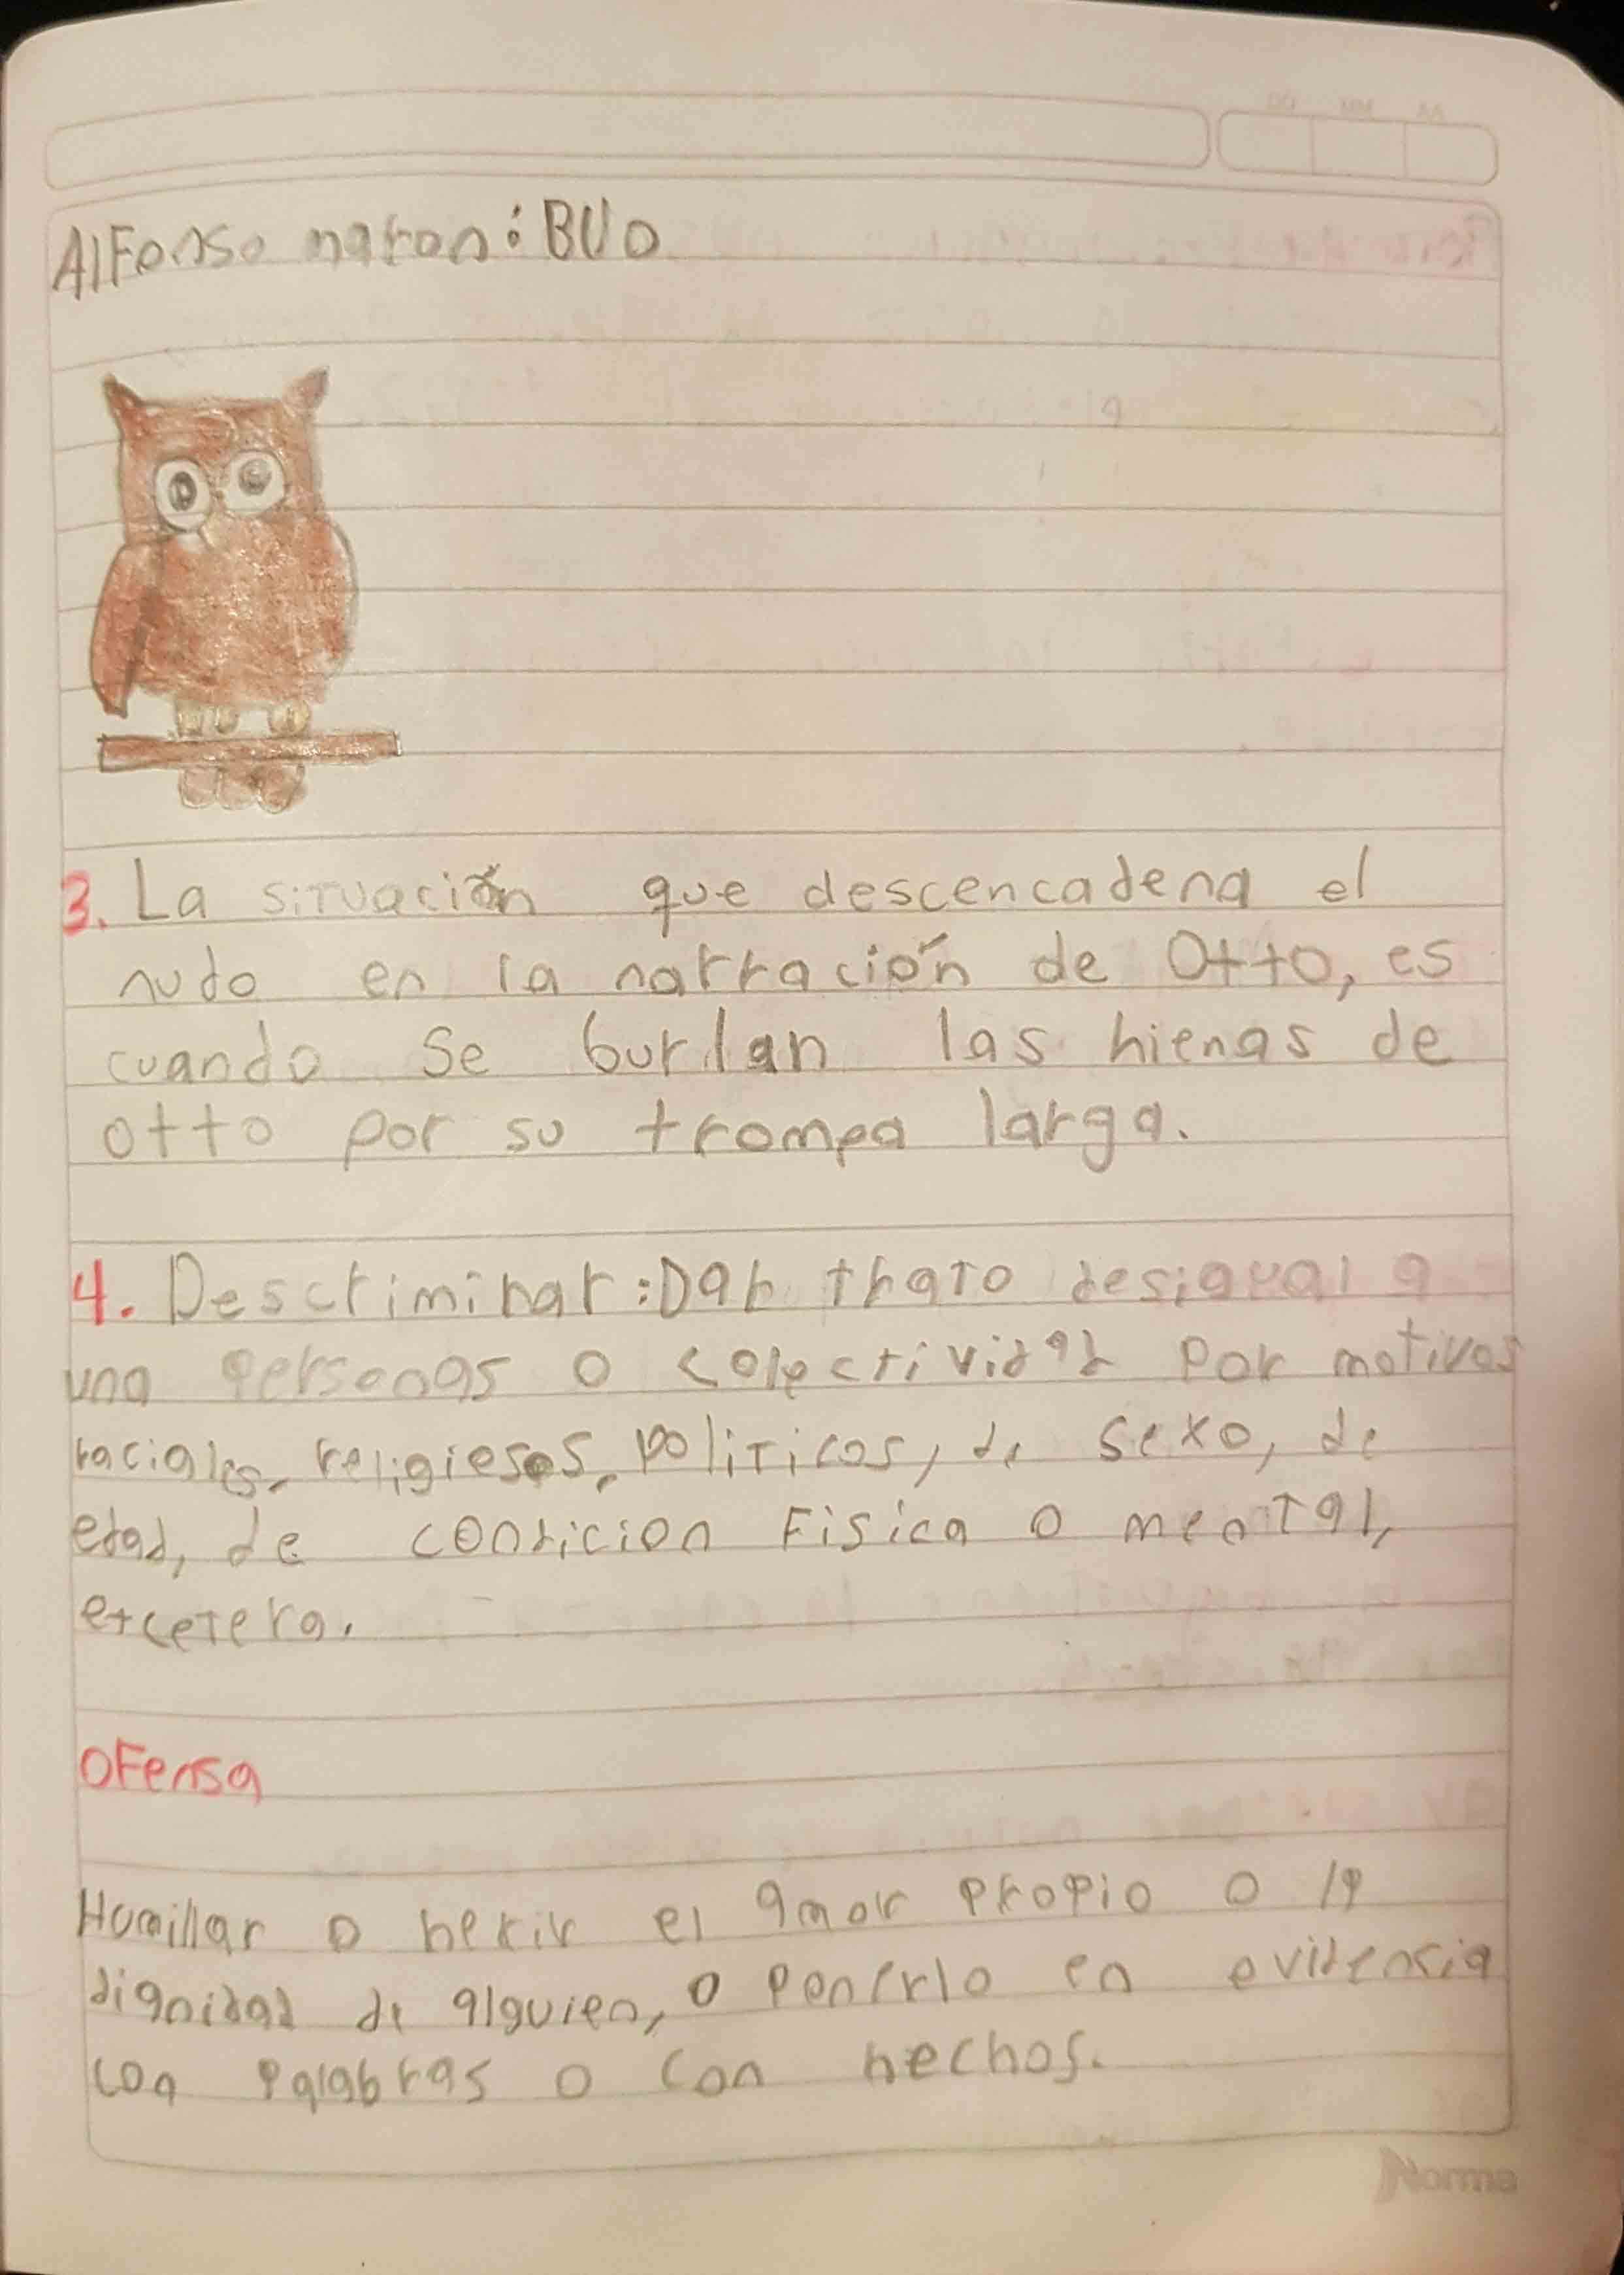 AA MM DD
AlFonso naron: BUO
3. La situación que descencadena el
nudo en la narración de Otto, es
cuando se burlan las hienas de
otto por su trompa larga.
4. Descriminar: Dar trato desigual a
una personas o colectividad por motivos
raciales, religiesos, politicos, de sexo, de
edad, de condicion Fisica o mental,
etcetera.
oFensa
Humillar o herir el amor propio o la
dignidad de alguien, o ponerlo en evidencia
con palabras o con hechos.
Norma